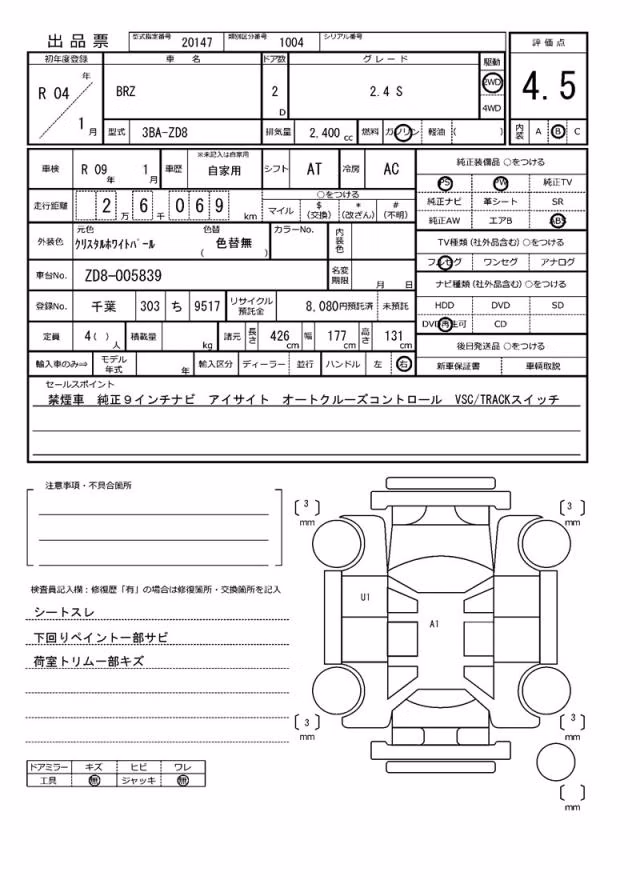 出品票 型式指定番号 20147 類別区分番号 1004 シリアル番号
初年度登録 車名 ドア数 グレード 駆動 評価点
R 04 年 BRZ 2 D 2.4 S 2WD 4WD 4.5
1 月 型式 3BA-ZD8 排気量 2,400 cc 燃料 ガソリン 軽油 ( ) 内装 A B C
車検 R 09 年 1 月 車歴 ※未記入は自家用 自家用 シフト AT 冷房 AC
走行距離 2 万 6 千 0 6 9 km ○をつける
マイル $ (交換) * (改ざん) # (不明)
外装色 元色 クリスタルホワイトパール 色替 ( 色替無 ) カラーNo. 内装色
車台No. ZD8-005839 名変期限 月 日
登録No. 千葉 303 ち 9517 リサイクル預託金 8,080円預託済 未預託
定員 4( ) 人 積載量 kg 諸元 長さ 426 cm 幅 177 cm 高さ 131 cm
輸入車のみ⇒ モデル年式 年 輸入区分 ディーラー 並行 ハンドル 左 右
純正装備品 ○をつける
PS PW 純正TV
純正ナビ 革シート SR
純正AW エアB ABS
TV種類 (社外品含む) ○をつける
フルセグ ワンセグ アナログ
ナビ種類 (社外品含む) ○をつける
HDD DVD SD
DVD再生可 CD
後日発送品 ○をつける
新車保証書 車輌取説
セールスポイント
禁煙車 純正９インチナビ アイサイト オートクルーズコントロール VSC/TRACKスイッチ
注意事項・不具合箇所
検査員記入欄：修復歴「有」の場合は修復箇所・交換箇所を記入
シートスレ
下回りペイント一部サビ
荷室トリム一部キズ
ドアミラー キズ ヒビ ワレ
工具 無 ジャッキ 無
3 mm
3 mm
U1
A1
3 mm
3 mm
mm